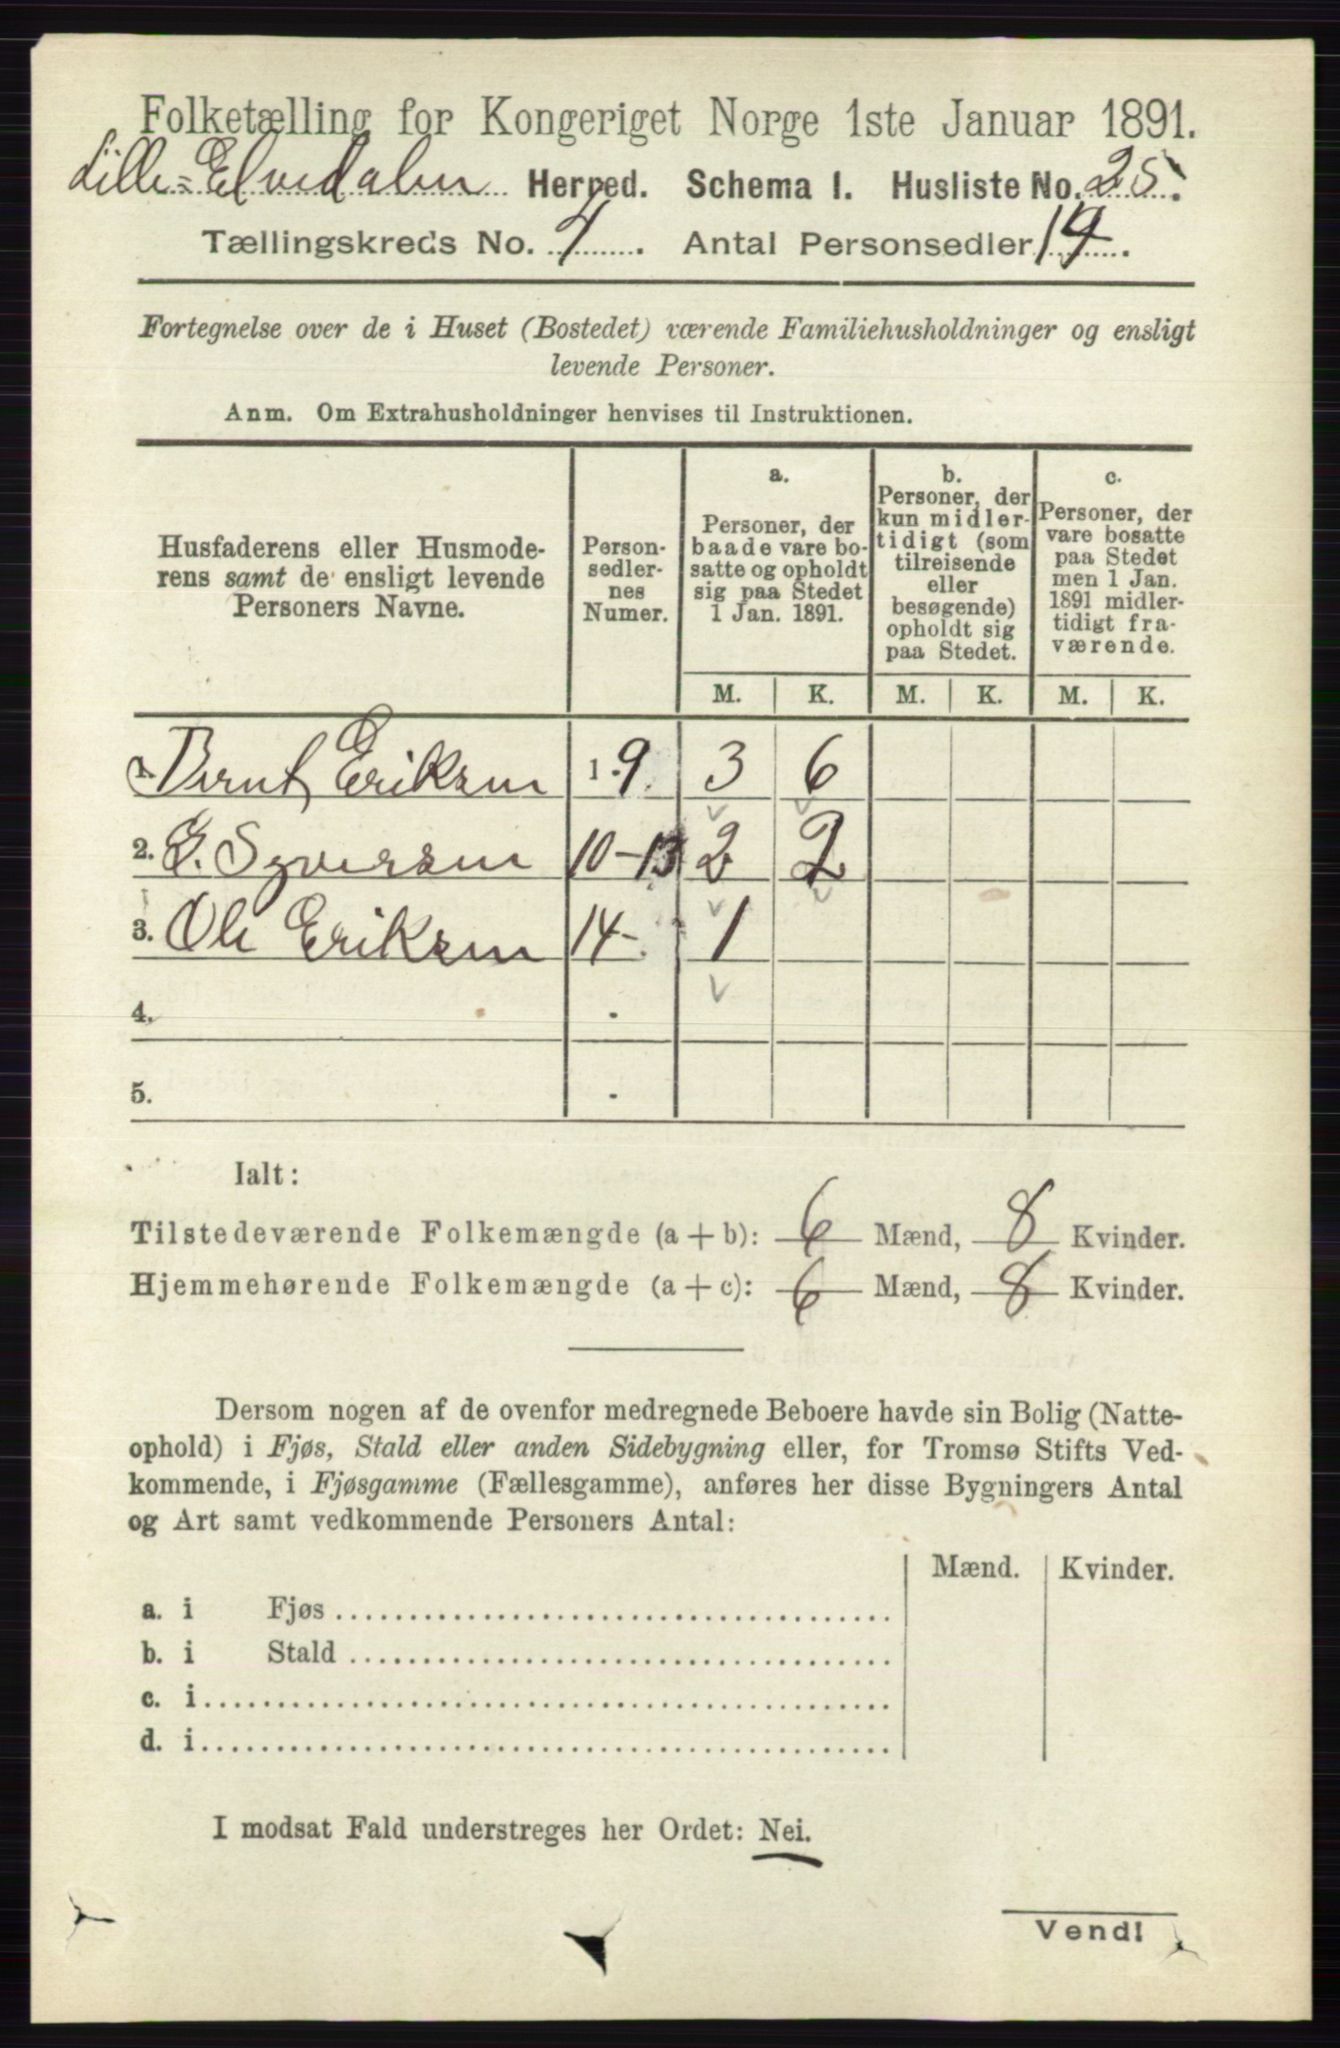 Folketælling for Kongeriget Norge 1ste Januar 1891.
Lille-Elvedalen Herred. Schema I. Husliste No. 25.
Tællingskreds No. 4. Antal Personsedler 14.
Fortegnelse over de i Huset (Bostedet) værende Familiehusholdninger og ensligt
levende Personer.
Anm. Om Extrahusholdninger henvises til Instruktionen.
Husfaderens eller Husmode-
rens samt de ensligt levende
Personers Navne.
Person-
sedler-
nes
Numer.
a.
Personer, der
baade vare bo-
satte og opholdt
sig paa Stedet
1 Jan. 1891.
b.
Personer, der
kun midler-
tidigt (som
tilreisende
eller
besøgende)
opholdt sig
paa Stedet.
c.
Personer, der
vare bosatte
paa Stedet
men 1 Jan.
1891 midler-
tidigt fra-
værende.
M. K. M. K. M. K.
1. Bernt Eriksen 1-9. 3 6
2. E. Syversen 10-13 2 2
3. Ole Eriksen 14-. 1
4. .
5. .
Ialt:
Tilstedeværende Folkemængde (a + b): 6 Mænd, 8 Kvinder.
Hjemmehørende Folkemængde (a + c): 6 Mænd, 8 Kvinder.
Dersom nogen af de ovenfor medregnede Beboere havde sin Bolig (Natte-
ophold) i Fjøs, Stald eller anden Sidebygning eller, for Tromsø Stifts Ved-
kommende, i Fjøsgamme (Fællesgamme), anføres her disse Bygningers Antal
og Art samt vedkommende Personers Antal:
Mænd. Kvinder.
a. i Fjøs
b. i Stald
c. i
d. i
I modsat Fald understreges her Ordet: Nei.
Vend!